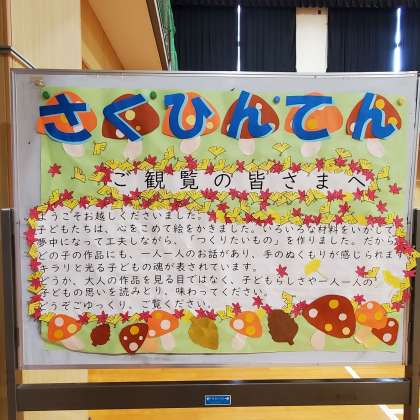 さくひんてん
ご観覧の皆さまへ
ようこそお越しくださいました。
子どもたちは、心をこめて絵をかきました。いろいろな材料をいかして、
夢中になって工夫しながら、「つくりたいもの」を作りました。だから、
どの子の作品にも、一人一人のお話があり、手のぬくもりが感じられます
キラリと光る子どもの魂が表されています。
どうか、大人の作品を見る目ではなく、子どもらしさや一人一人の
子どもの思いを読みとり、味わってください。
どうぞごゆっくり、ご覧ください。